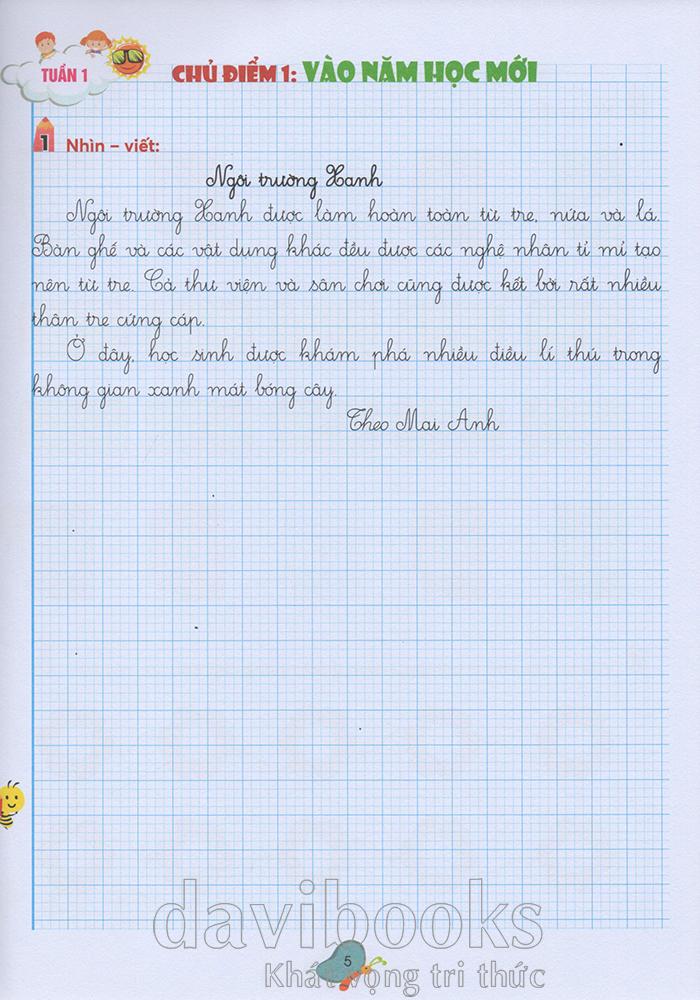 TUẦN 1
CHỦ ĐIỂM 1: VÀO NĂM HỌC MỚI
1 Nhìn – viết:
Ngôi trường Xanh
Ngôi trường Xanh được làm hoàn toàn từ tre, nứa và lá.
Bàn ghế và các vật dụng khác đều được các nghệ nhân tỉ mỉ tạo
nên từ tre. Cả thư viện và sân chơi cũng được kết bởi rất nhiều
thân tre cứng cáp.
Ở đây, học sinh được khám phá nhiều điều lí thú trong
không gian xanh mát bóng cây.
Theo Mai Anh
davibooks
5
Khát vọng tri thức